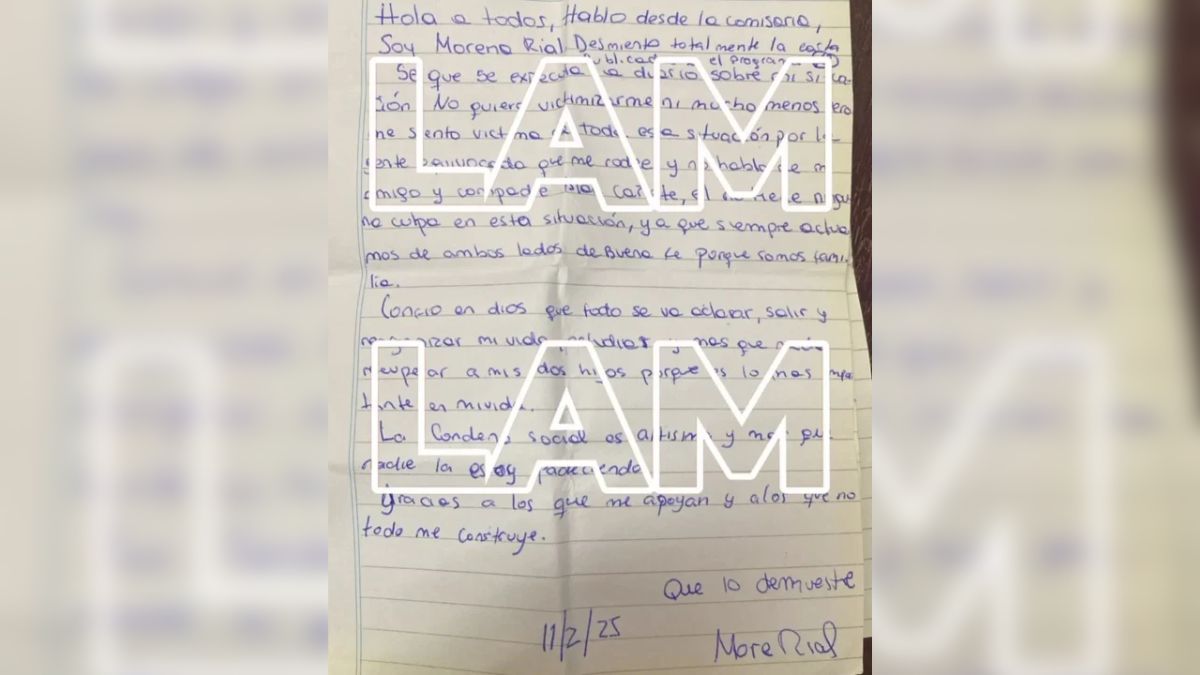 Hola a todos, Hablo desde la comisaria,
Soy Morena Rial Desmiento totalmente la carta
publicada el programa
Se que se expecula a diario sobre mi situa-
ción No quiero victimizarme ni mucho menos pero
me siento victima de toda esta situación por la
gente equivocada que me rodee y no hablo de mi
amigo y compadre el no tiene ningu
na culpa en esta situación, ya que siempre actua
mos de ambos lados de Buena fe porque somos fami-
lia.
Confio en dios que todo se va aclarar, salir y
reorganizar mi vida, estudiar y mas que nada
recuperar a mis dos hijos porque es lo mas impor
tante en mi vida.
La Condena social es altisima y mas que
nadie la estoy padeciendo.
Gracias a los que me apoyan y a los que no
todo me construye.
Que lo demuestre
11/2/25
More Rial
LAM
LAM